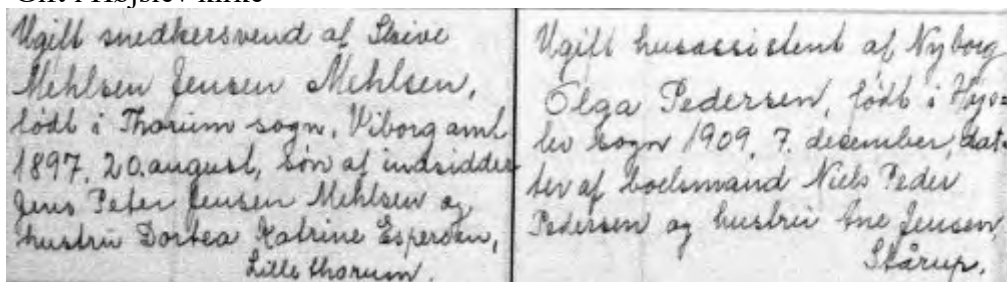 Gift i Højslev kirke
Ugift snedkersvend af Skive
Mehlsen Jensen Mehlsen,
født i Thorum sogn, Viborg amt
1897, 20. august, søn af indsidder
Jens Peter Jensen Mehlsen og
hustru Dortea Katrine Espersen,
Lille thorum.
Ugift husassistent af Nyborg
Olga Pedersen, født i Højs=
lev sogn 1909, 7. december, dat=
ter af boelsmand Niels Peder
Pedersen og hustru Ane Jensen,
Stårup.